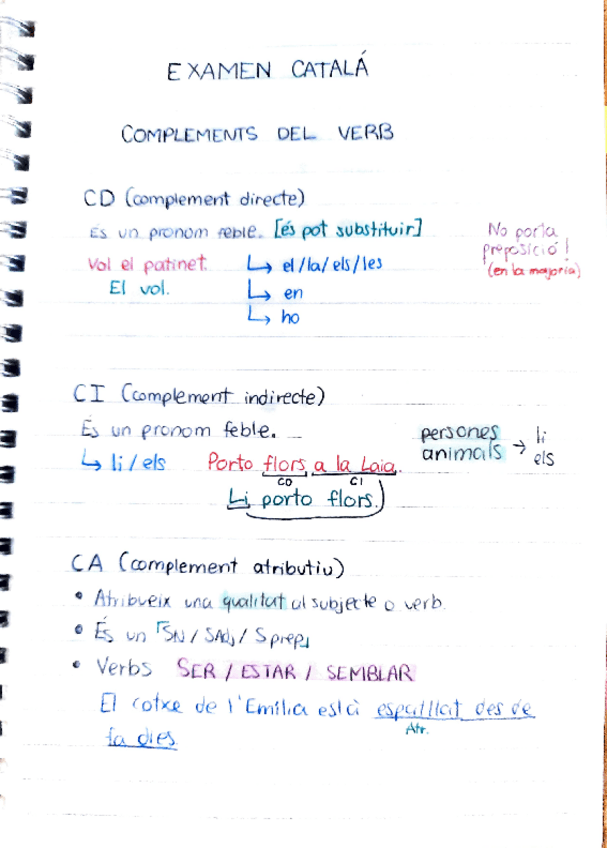 EXAMEN CATALÁ
COMPLEMENTS DEL VERB
CD (complement directe)
És un pronom feble. [és pot substituir]
No porta
preposició!
(en la majoria)
Vol el patinet. ↳ el/la/els/les
El vol. ↳ en
↳ ho
CI (complement indirecte)
És un pronom feble.
persones
animals → li
els
↳ li/els Porto flors a la Laia.
CD CI
Li porto flors.
CA (complement atributiu)
• Atribueix una qualitat al subjecte o verb.
• És un SN / SAdj / Sprep
• Verbs SER / ESTAR / SEMBLAR
El cotxe de l'Emília està espatllat des de
Atr.
fa dies